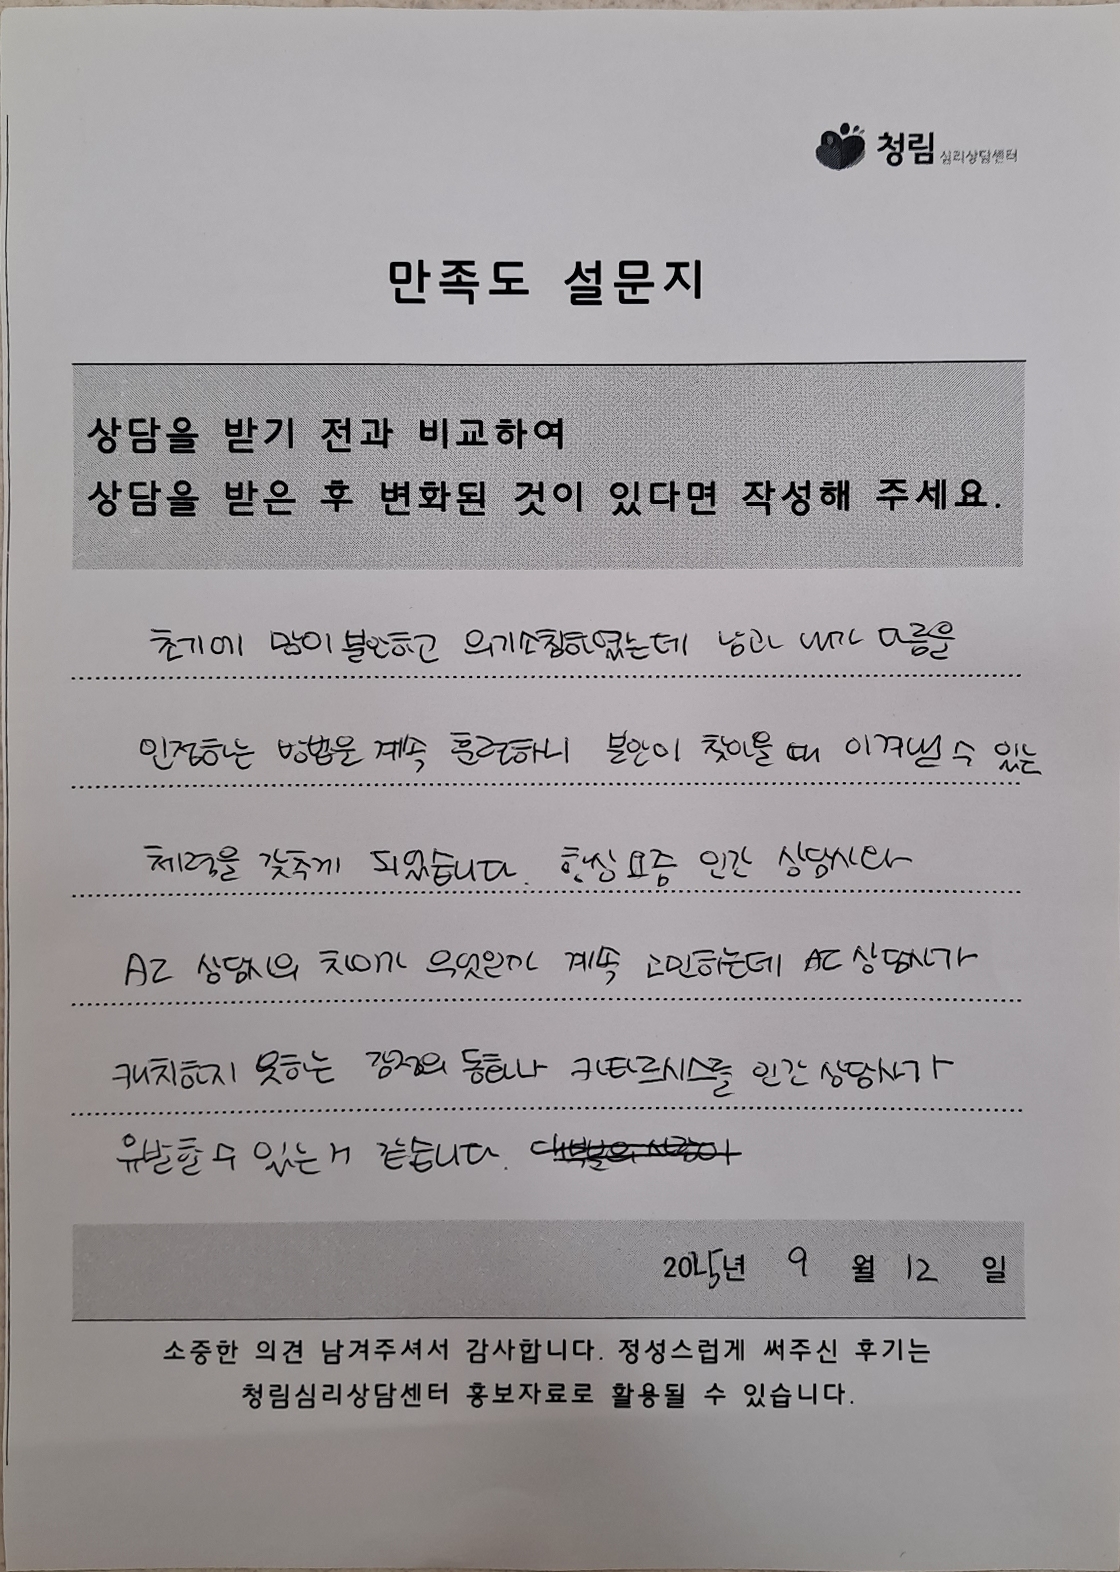 청림 심리상담센터
만족도 설문지
상담을 받기 전과 비교하여
상담을 받은 후 변화된 것이 있다면 작성해 주세요.
초기에 많이 불안하고 의기소침하였는데 남과 내가 다름을
인정하는 방법을 계속 훈련하니 불안이 찾아올 때 이겨낼 수 있는
체력을 갖추게 되었습니다. 항상 요즘 인간 상담사와
AI 상담사의 차이가 무엇일까 계속 고민하는데 AI 상담사가
캐치하지 못하는 감정의 동화나 카타르시스를 인간 상담사가
유발할 수 있는거 같습니다.
2025년 9 월 12 일
소중한 의견 남겨주셔서 감사합니다. 정성스럽게 써주신 후기는
청림심리상담센터 홍보자료로 활용될 수 있습니다.